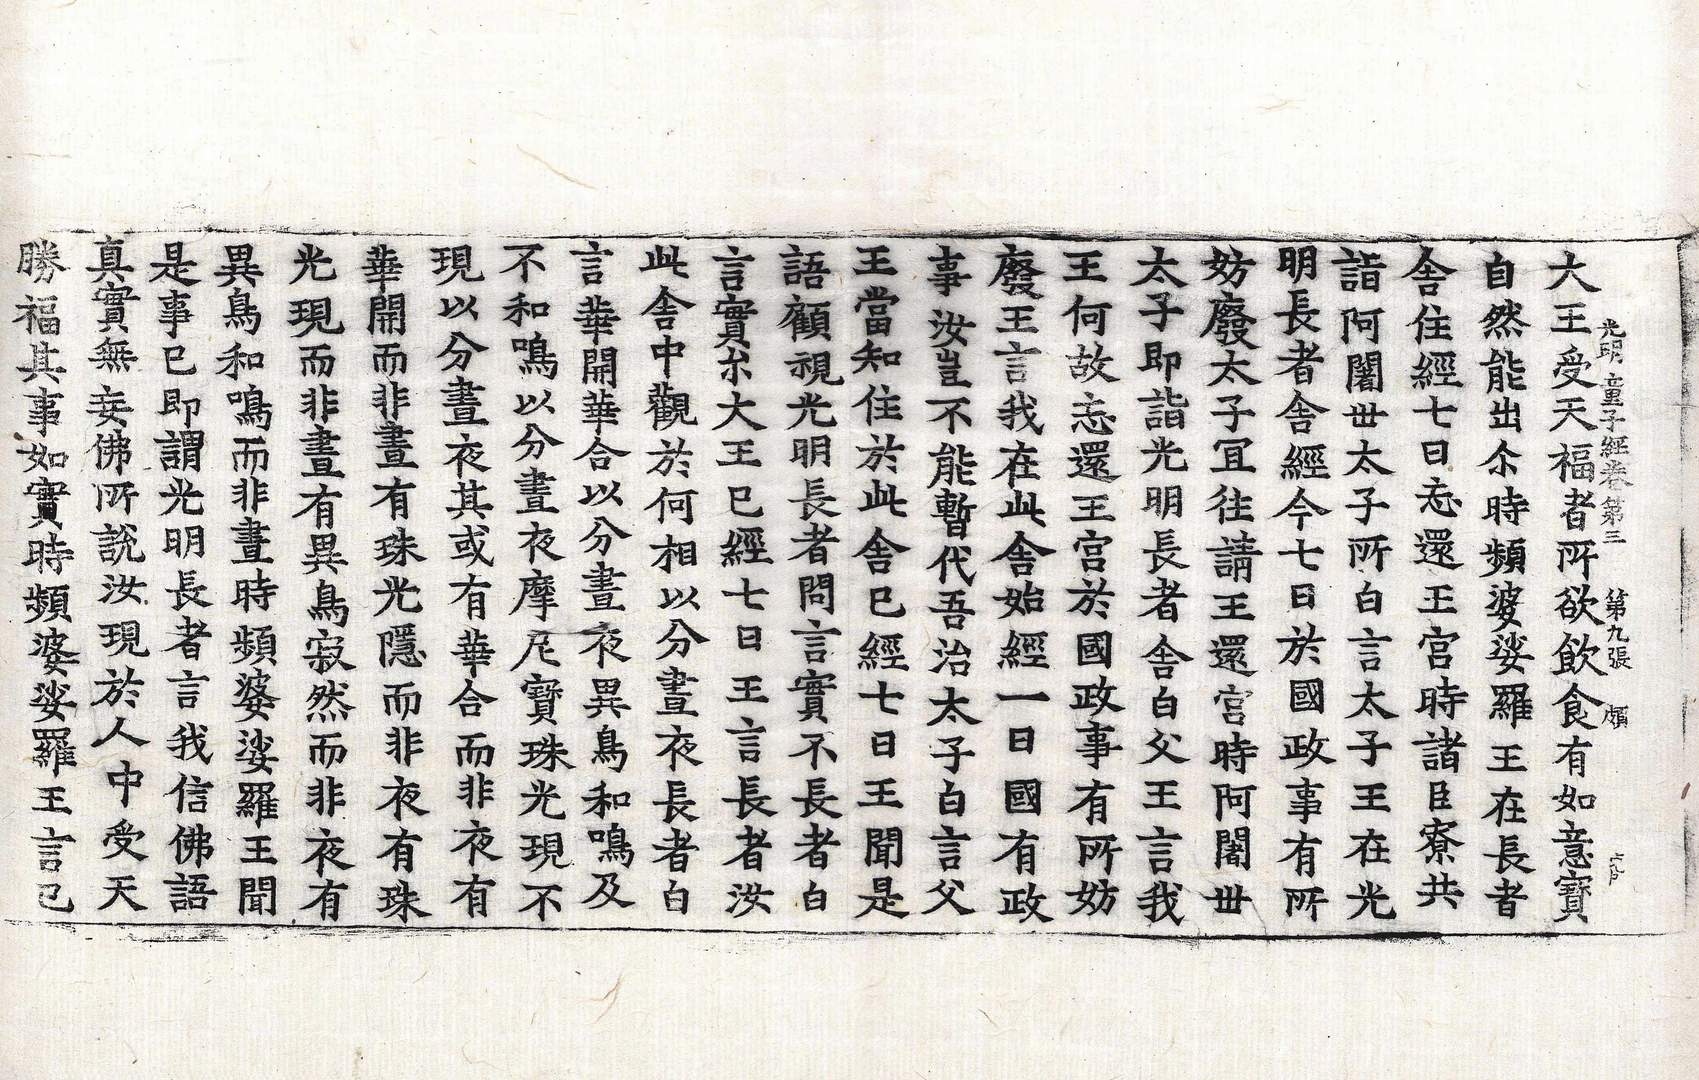 光明童子經卷第三　第九張　頗
大王受天福者所欲飲食有如意寶
自然能出尒時頻婆娑羅王在長者
舍住經七日忘還王宮時諸臣寮共
詣阿闍世太子所白言太子王在光
明長者舍經今七日於國政事有所
妨廢太子冝往請王還宮時阿闍世
太子即詣光明長者舍白父王言我
王何故忘還王宮於國政事有所妨
廢王言我在此舍始經一日國有政
事汝豈不能暫代吾治太子白言父
王當知住於此舍已經七日王聞是
語顧視光明長者問言實不長者白
言實尒大王已經七日王言長者汝
此舍中觀於何相以分晝夜長者白
言華開華合以分晝夜異鳥和鳴及
不和鳴以分晝夜摩尼寶珠光現不
現以分晝夜其或有華合而非夜有
華開而非晝有珠光隱而非夜有珠
光現而非晝有異鳥寂然而非夜有
異鳥和鳴而非晝時頻婆娑羅王聞
是事已即謂光明長者言我信佛語
真實無妄佛所說汝現於人中受天
勝福其事如實時頻婆娑羅王言已